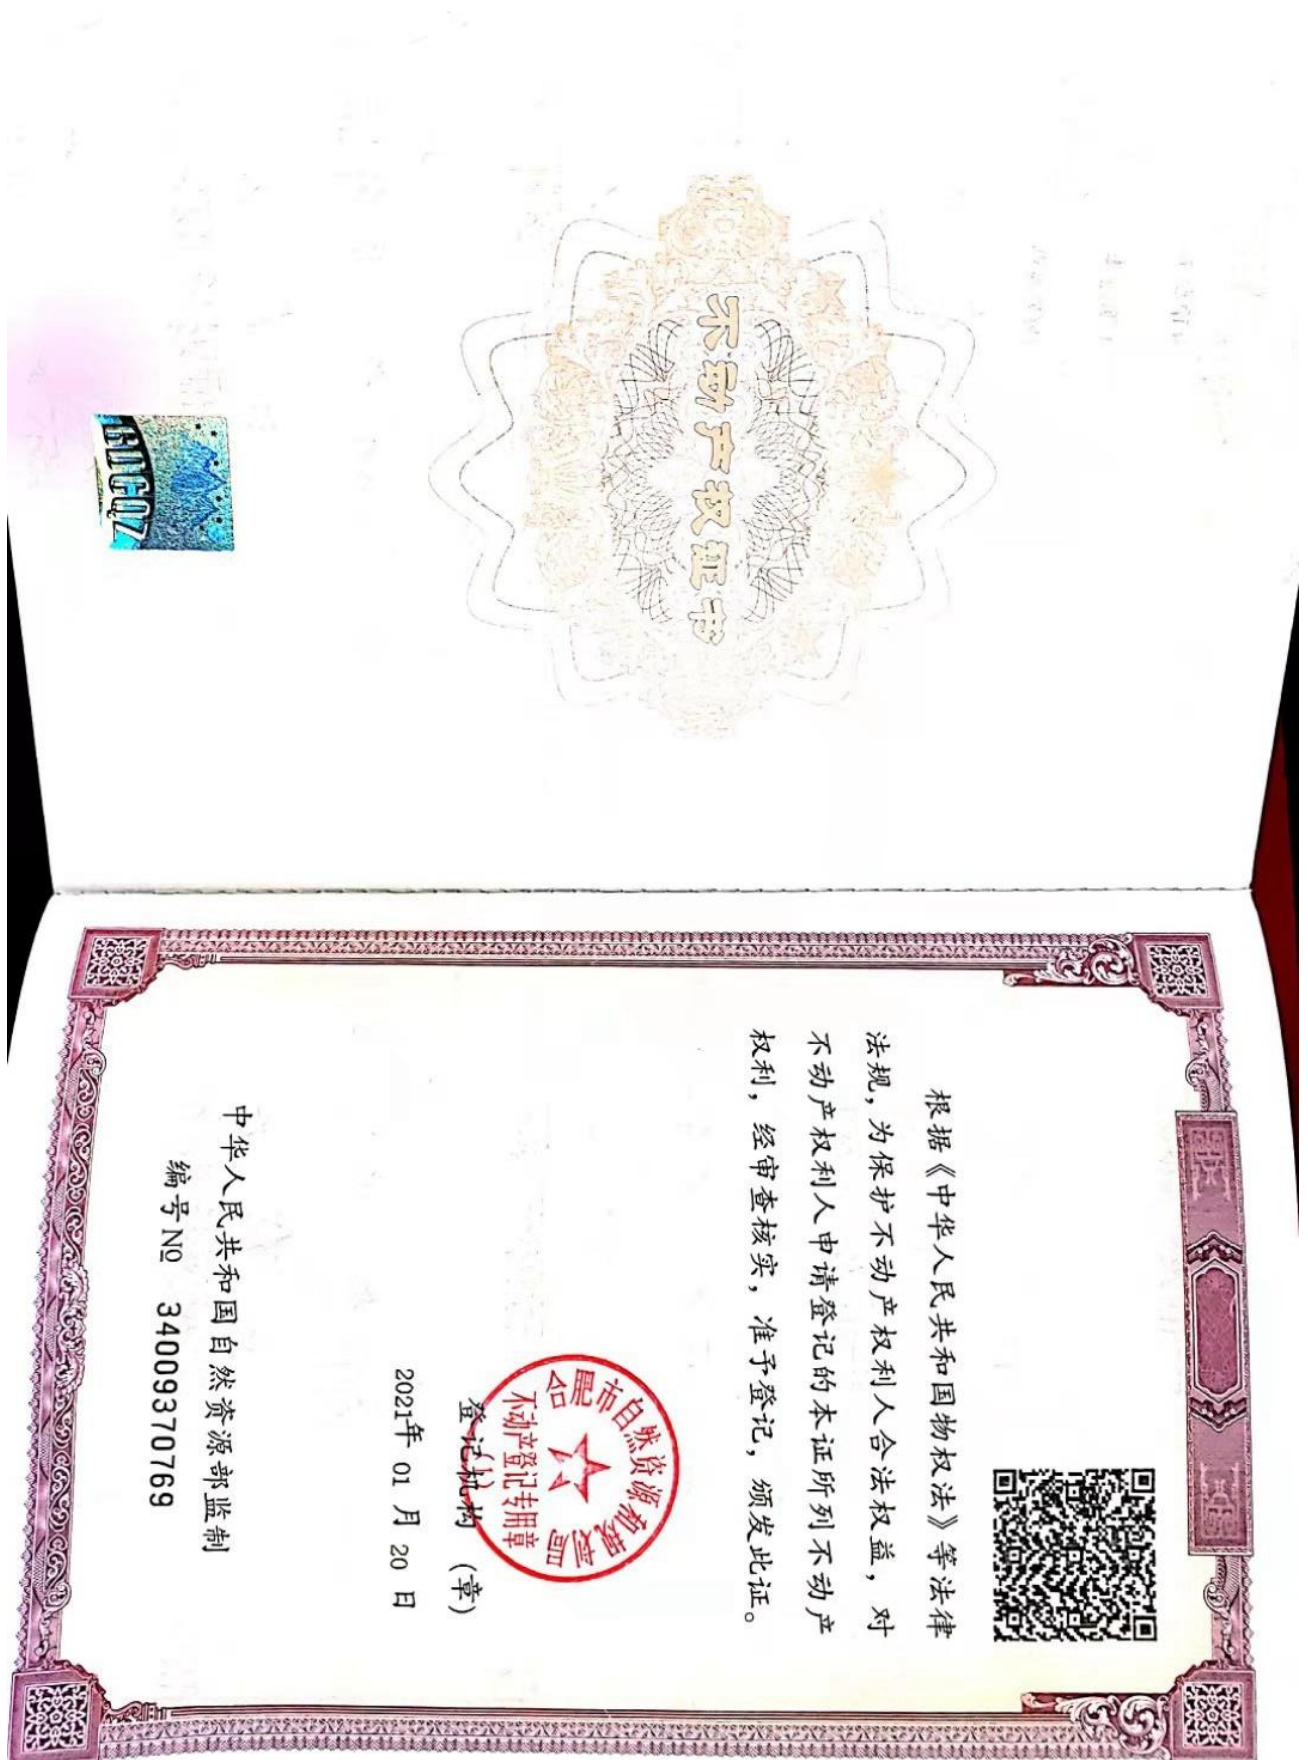 不动产权证书
根据《中华人民共和国物权法》等法律
法规，为保护不动产权利人合法权益，对
不动产权利人申请登记的本证所列不动产
权利，经审查核实，准予登记，颁发此证。
合肥市自然资源和规划局
不动产登记专用章
登记机构（章）
2021年 01 月 20 日
中华人民共和国自然资源部监制
编号№ 34009370769